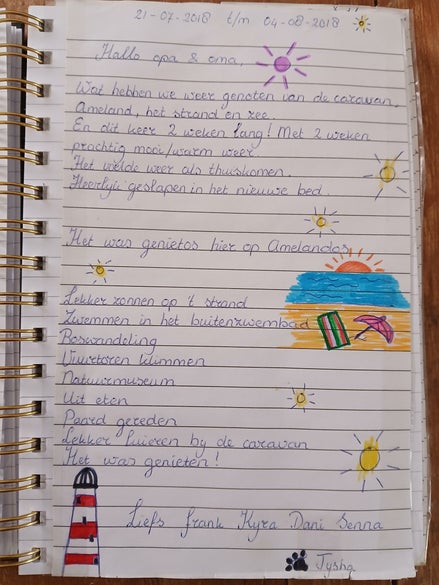 21-07-2018 t/m 04-08-2018
Hallo opa & oma,
Wat hebben we weer genoten van de caravan,
Ameland, het strand en zee.
En dit keer 2 weken lang! Met 2 weken
prachtig mooi/warm weer.
Het voelde weer als thuiskomen.
Heerlijk geslapen in het nieuwe bed.
Het was genietos hier op Amelandos
Lekker zonnen op 't strand
Zwemmen in het buitenzwembad
Boswandeling
Vuurtoren klimmen
Natuurmuseum
Uit eten
Paard gereden
Lekker luieren bij de caravan
Het was genieten!
Liefs Frank Kyra Dani Senna
Tysha